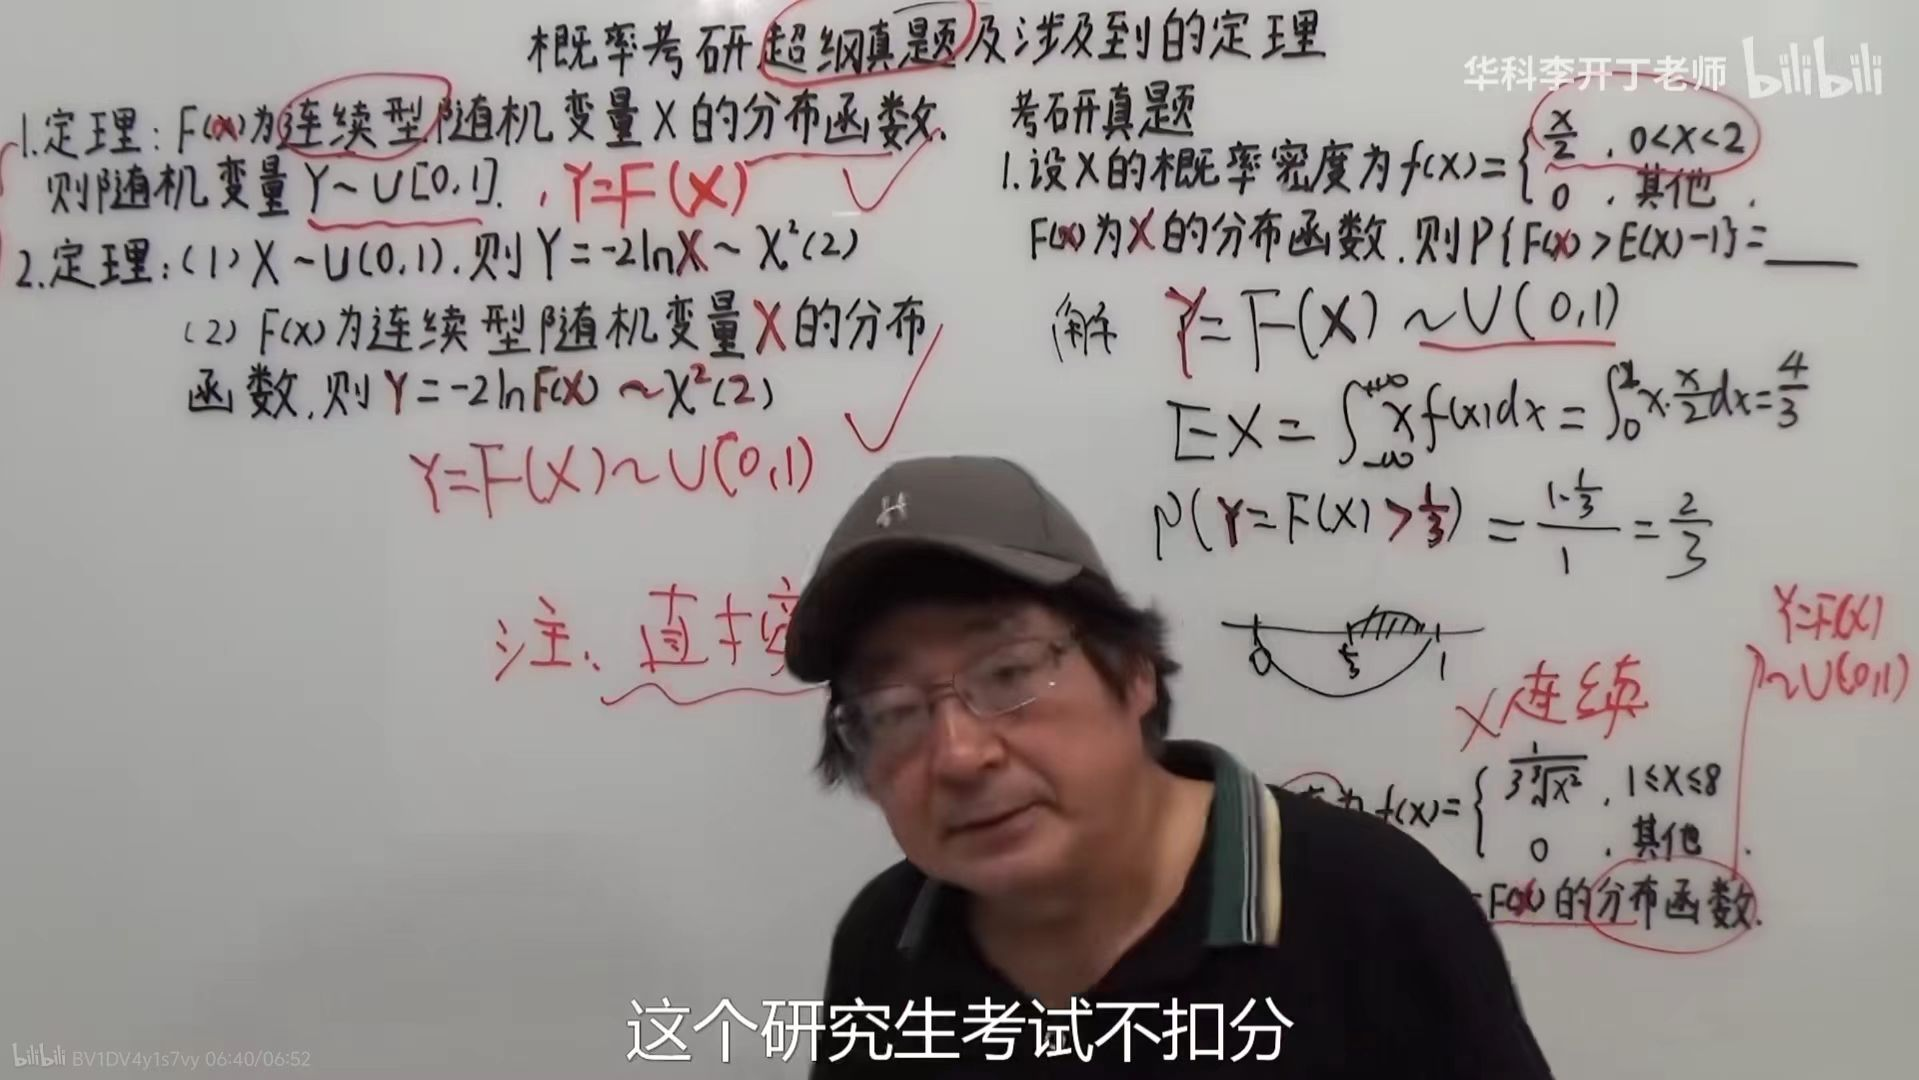 概率考研超纲真题及涉及到的定理
华科李开丁老师 bilibili
1.定理:F(x)为连续型随机变量X的分布函数.
则随机变量Y~U[0,1]. , Y=F(X)
2.定理:(1)X~U(0,1).则Y=-2lnX~X²(2)
(2)F(x)为连续型随机变量X的分布
函数.则Y=-2lnF(X)~X²(2)
Y=F(X)~U(0,1)
注、直接
考研真题
1.设X的概率密度为f(x)={ x/2 , 0<x<2
0 , 其他 .
F(x)为X的分布函数.则P{F(X)>E(X)-1}=____
解 Y=F(X)~U(0,1)
EX=∫_{-∞}^{+∞}xf(x)dx=∫_0^2 x·x/2dx=4/3
P(Y=F(X)>1/3)=(1-1/3)/1=2/3
0 1/3 1
Y=F(X)
~U(0,1)
X连续
为f(x)={ 1/(3∛x²) , 1≤x≤8
0 , 其他 .
=F(X)的分布函数.
这个研究生考试不扣分
bilibili BV1DV4y1s7vy 06:40/06:52